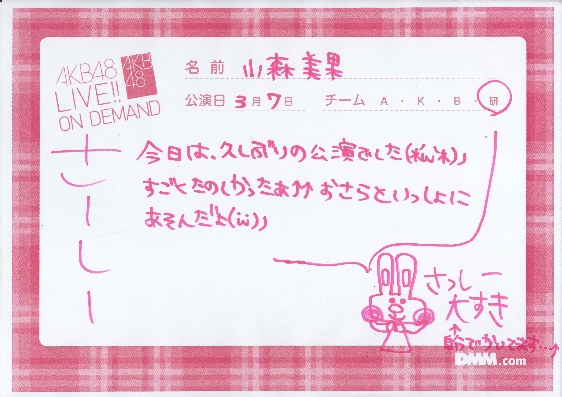 AKB48
LIVE!!
ON DEMAND
AKB
48
名前 小森美果
公演日 3月7日 チーム A・K・B・研
今日は、久しぶりの公演でした(
すごくたのしかったぁ↑↑ おさらといっしょに
あそんだよ(ω)」
さっしー
大すき
↑
DMM.com